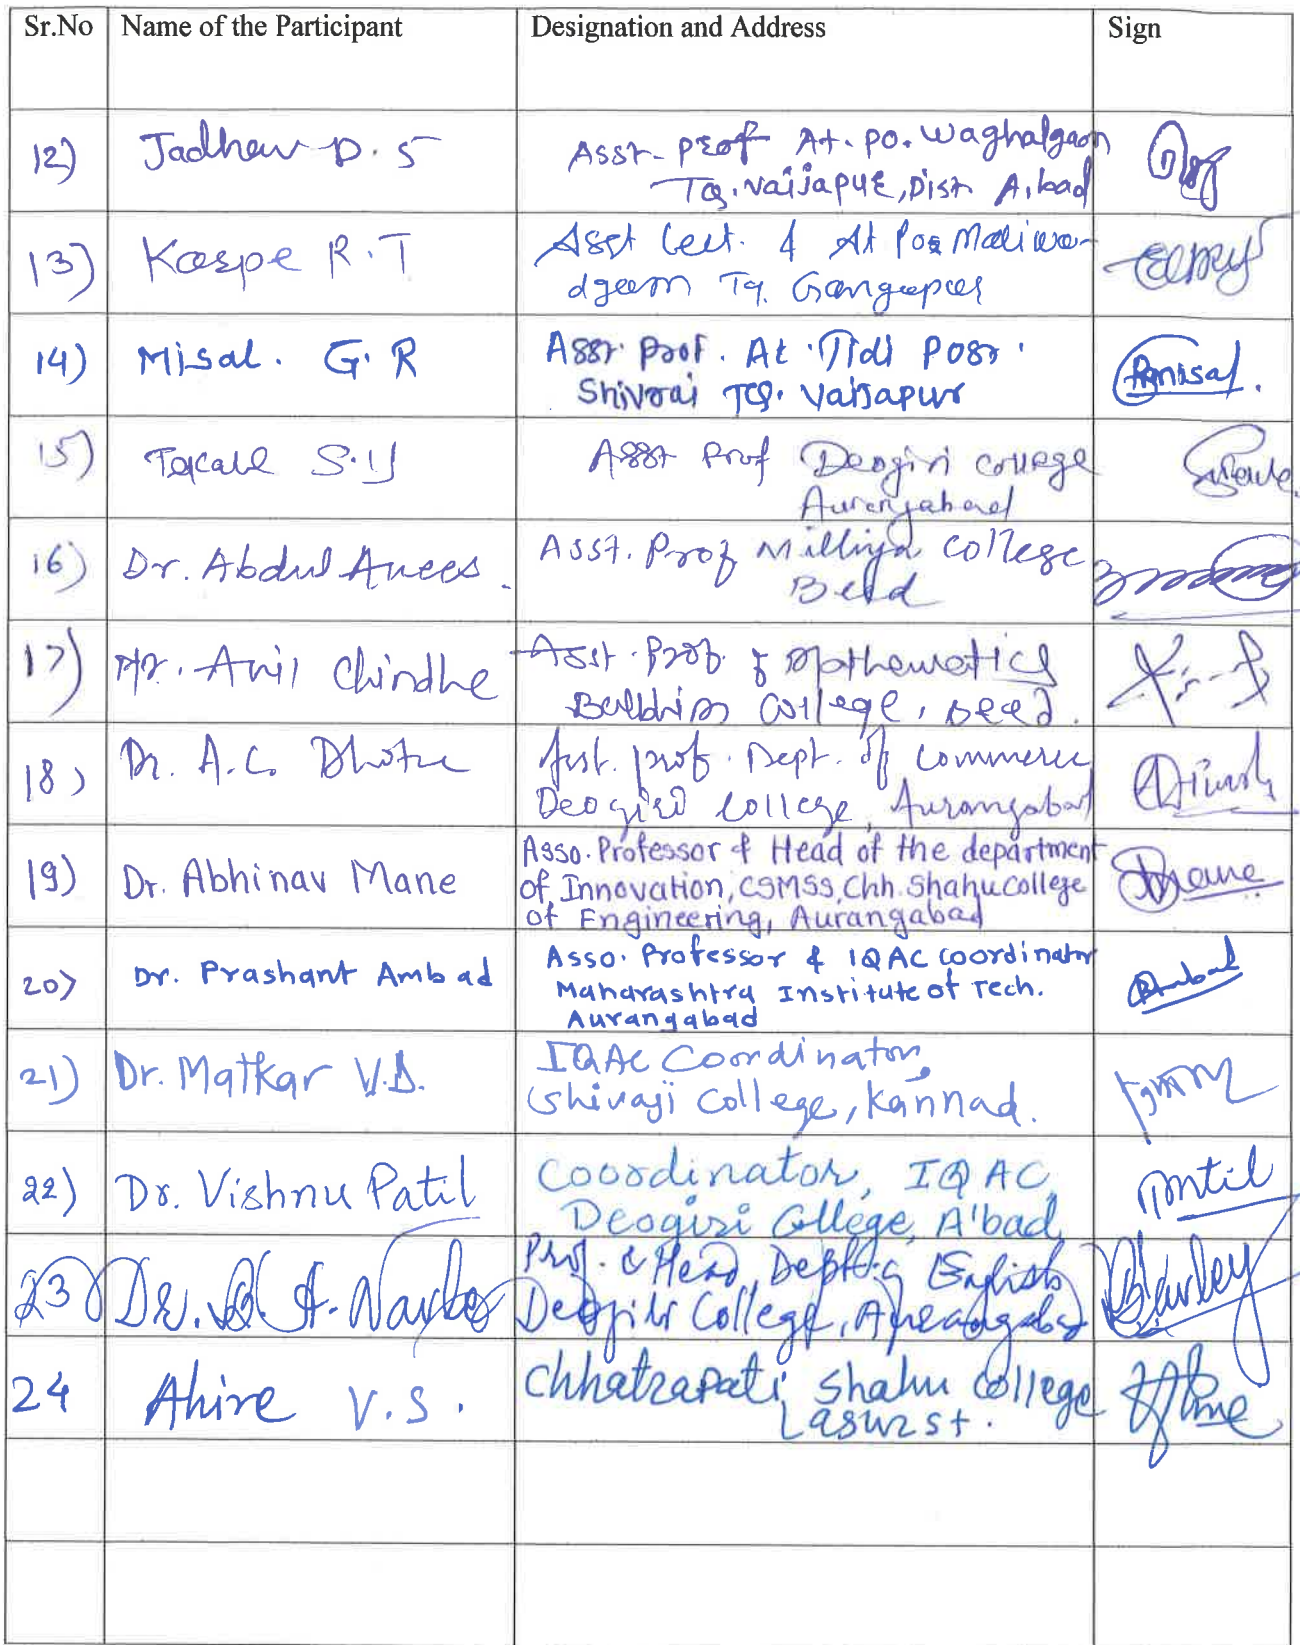 Sr.No Name of the Participant Designation and Address Sign
12) Jadhav D. S Asst- Prof At. po. Waghalgaon
TQ. Vaijapur, Dist A.bad
13) R. T Asst Lect. & At Pos Maliwa-
dgaon Tq. Gangapur
14) Misal. G. R Asst. Prof. At. Tidi Post.
Shivrai TQ. Vaijapur
misal.
15) S. Asst Prof Deogiri college
Aurangabad
16) Dr. Abdul Anees. Asst. Prof Milliya College
Beed
17) Mr. Anil Chindhe Asst. Prof. of Mathematics
Balbhim College, Beed.
18) Dr. A.C. Asst. prof. Dept. of Commerce
Deogiri College, Aurangabad
19) Dr. Abhinav Mane Asso. Professor & Head of the department
of Innovation, CSMSS, Chh. Shahu College
of Engineering, Aurangabad
Mane
20) Dr. Prashant Ambad Asso. Professor & IQAC coordinator
Maharashtra Institute of Tech.
Aurangabad
Ambad
21) Dr. Matkar V.D. IQAC Coordinator,
Shivaji College, Kannad.
22) Dr. Vishnu Patil Coordinator, IQAC,
Deogiri College, A'bad
23) Dr. A. Prof. & Head, Dept. of English
Deogiri College, Aurangabad
24 Ahire V.S. Chhatrapati Shahu College
Lasur st.